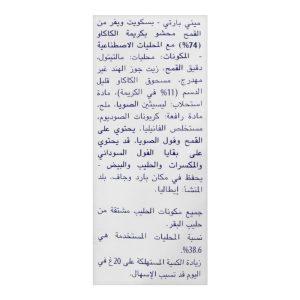 ميني بارتي - بسكويت ويفر من
القمح محشو بكريمة الكاكاو
(74%) مع المحليات الاصطناعية
- المكونات: محليات: مالتيتول،
دقيق القمح، زيت جوز الهند غير
مهدرج، مسحوق الكاكاو قليل
الدسم (11% في الكريمة)، مادة
استحلاب: ليسيثين الصويا، ملح،
مادة رافعة: كربونات الصوديوم،
مستخلص الفانيليا. يحتوي على
القمح وفول الصويا. قد يحتوي
على بقايا الفول السوداني
والمكسرات والحليب والبيض -
يحفظ في مكان بارد وجاف. بلد
المنشأ: إيطاليا.
جميع مكونات الحليب مشتقة من
حليب البقر.
نسبة المحليات المستخدمة هي
38.6%.
زيادة الكمية المستهلكة على 20غ في
اليوم قد تسبب الإسهال.